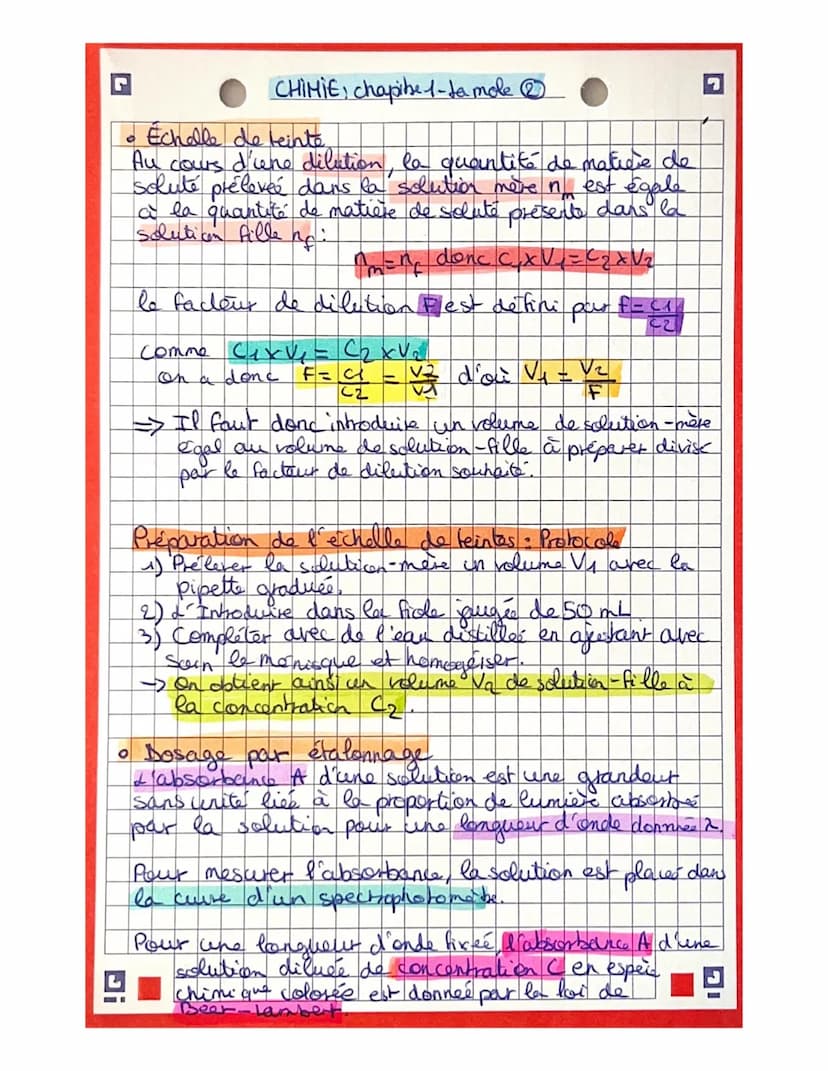 CHIMIE : chapitre 1 - La mole ②
• Échelle de teinte
Au cours d'une dilution, la quantité de matière de
soluté prélevée dans la solution mère nm est égale
à la quantité de matière de soluté présente dans la
solution fille nf :
nm = nf donc C1 x V1 = C2 x V2
le facteur de dilution F est défini par F = C1/C2
comme C1 x V1 = C2 x V2
on a donc F = C1/C2 = V2/V1 d'où V1 = V2/F
⇒ Il faut donc introduire un volume de solution-mère
égal au volume de solution-fille à préparer divisé
par le facteur de dilution souhaité.
Préparation de l'échelle de teintes : Protocole
1) Prélever la solution-mère un volume V1 avec la
pipette graduée.
2) L'Introduire dans la fiole jaugée de 50 mL
3) Compléter avec de l'eau distillée en ajustant avec
soin le ménisque et homogéiser.
→ On obtient ainsi un volume V2 de solution-fille à
la concentration C2.
• Dosage par étalonnage
L'absorbance A d'une solution est une grandeur
sans unité liée à la proportion de lumière absorbée
par la solution pour une longueur d'onde donnée λ.
Pour mesurer l'absorbance, la solution est placée dans
la cuve d'un spectrophotomètre.
Pour une longueur d'onde fixée, l'absorbance A d'une
solution diluée de concentration C en espèce
chimique colorée est donnée par la loi de
Beer-Lambert.